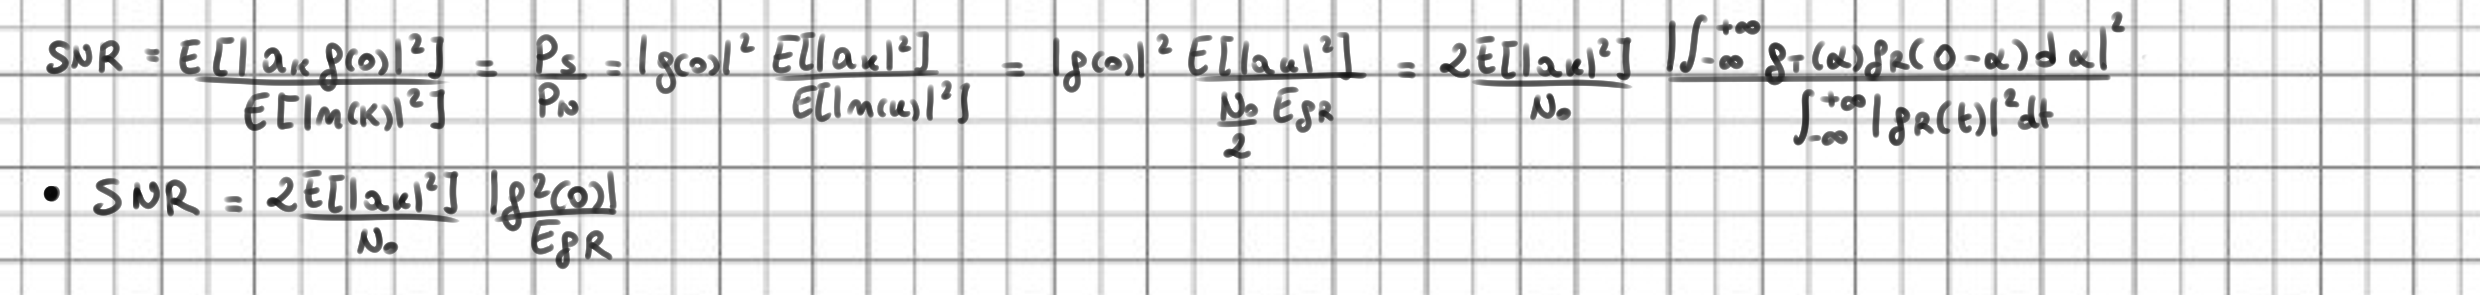 SNR = E[|aₖ g(0)|²] / E[|n(k)|²] = Pₛ / P_N = |g(0)|² E[|aₖ|²] / E[|n(k)|²] = |g(0)|² E[|aₖ|²] / (N₀/2 E_gR) = 2E[|aₖ|²] / N₀ |∫_{-∞}^{+∞} g_T(α) g_R(0-α) dα|² / ∫_{-∞}^{+∞} |g_R(t)|² dt
• SNR = 2E[|aₖ|²] / N₀ |g²(0)| / E_gR